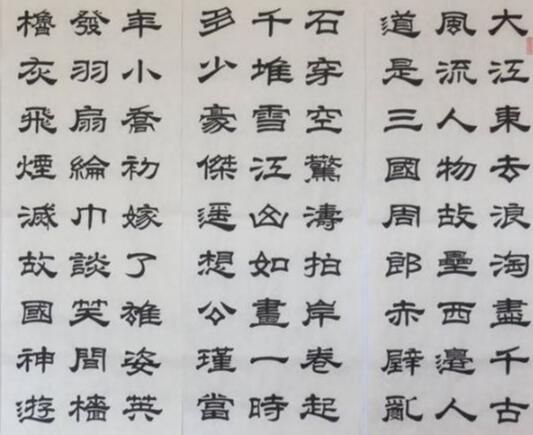 大江東去浪淘盡千古
風流人物故壘西邊人
道是三國周郎赤壁亂
石穿空驚濤拍岸卷起
千堆雪江山如畫一時
多少豪傑遙想公瑾當
年小喬初嫁了雄姿英
發羽扇綸巾談笑間檣
櫓灰飛煙滅故國神遊